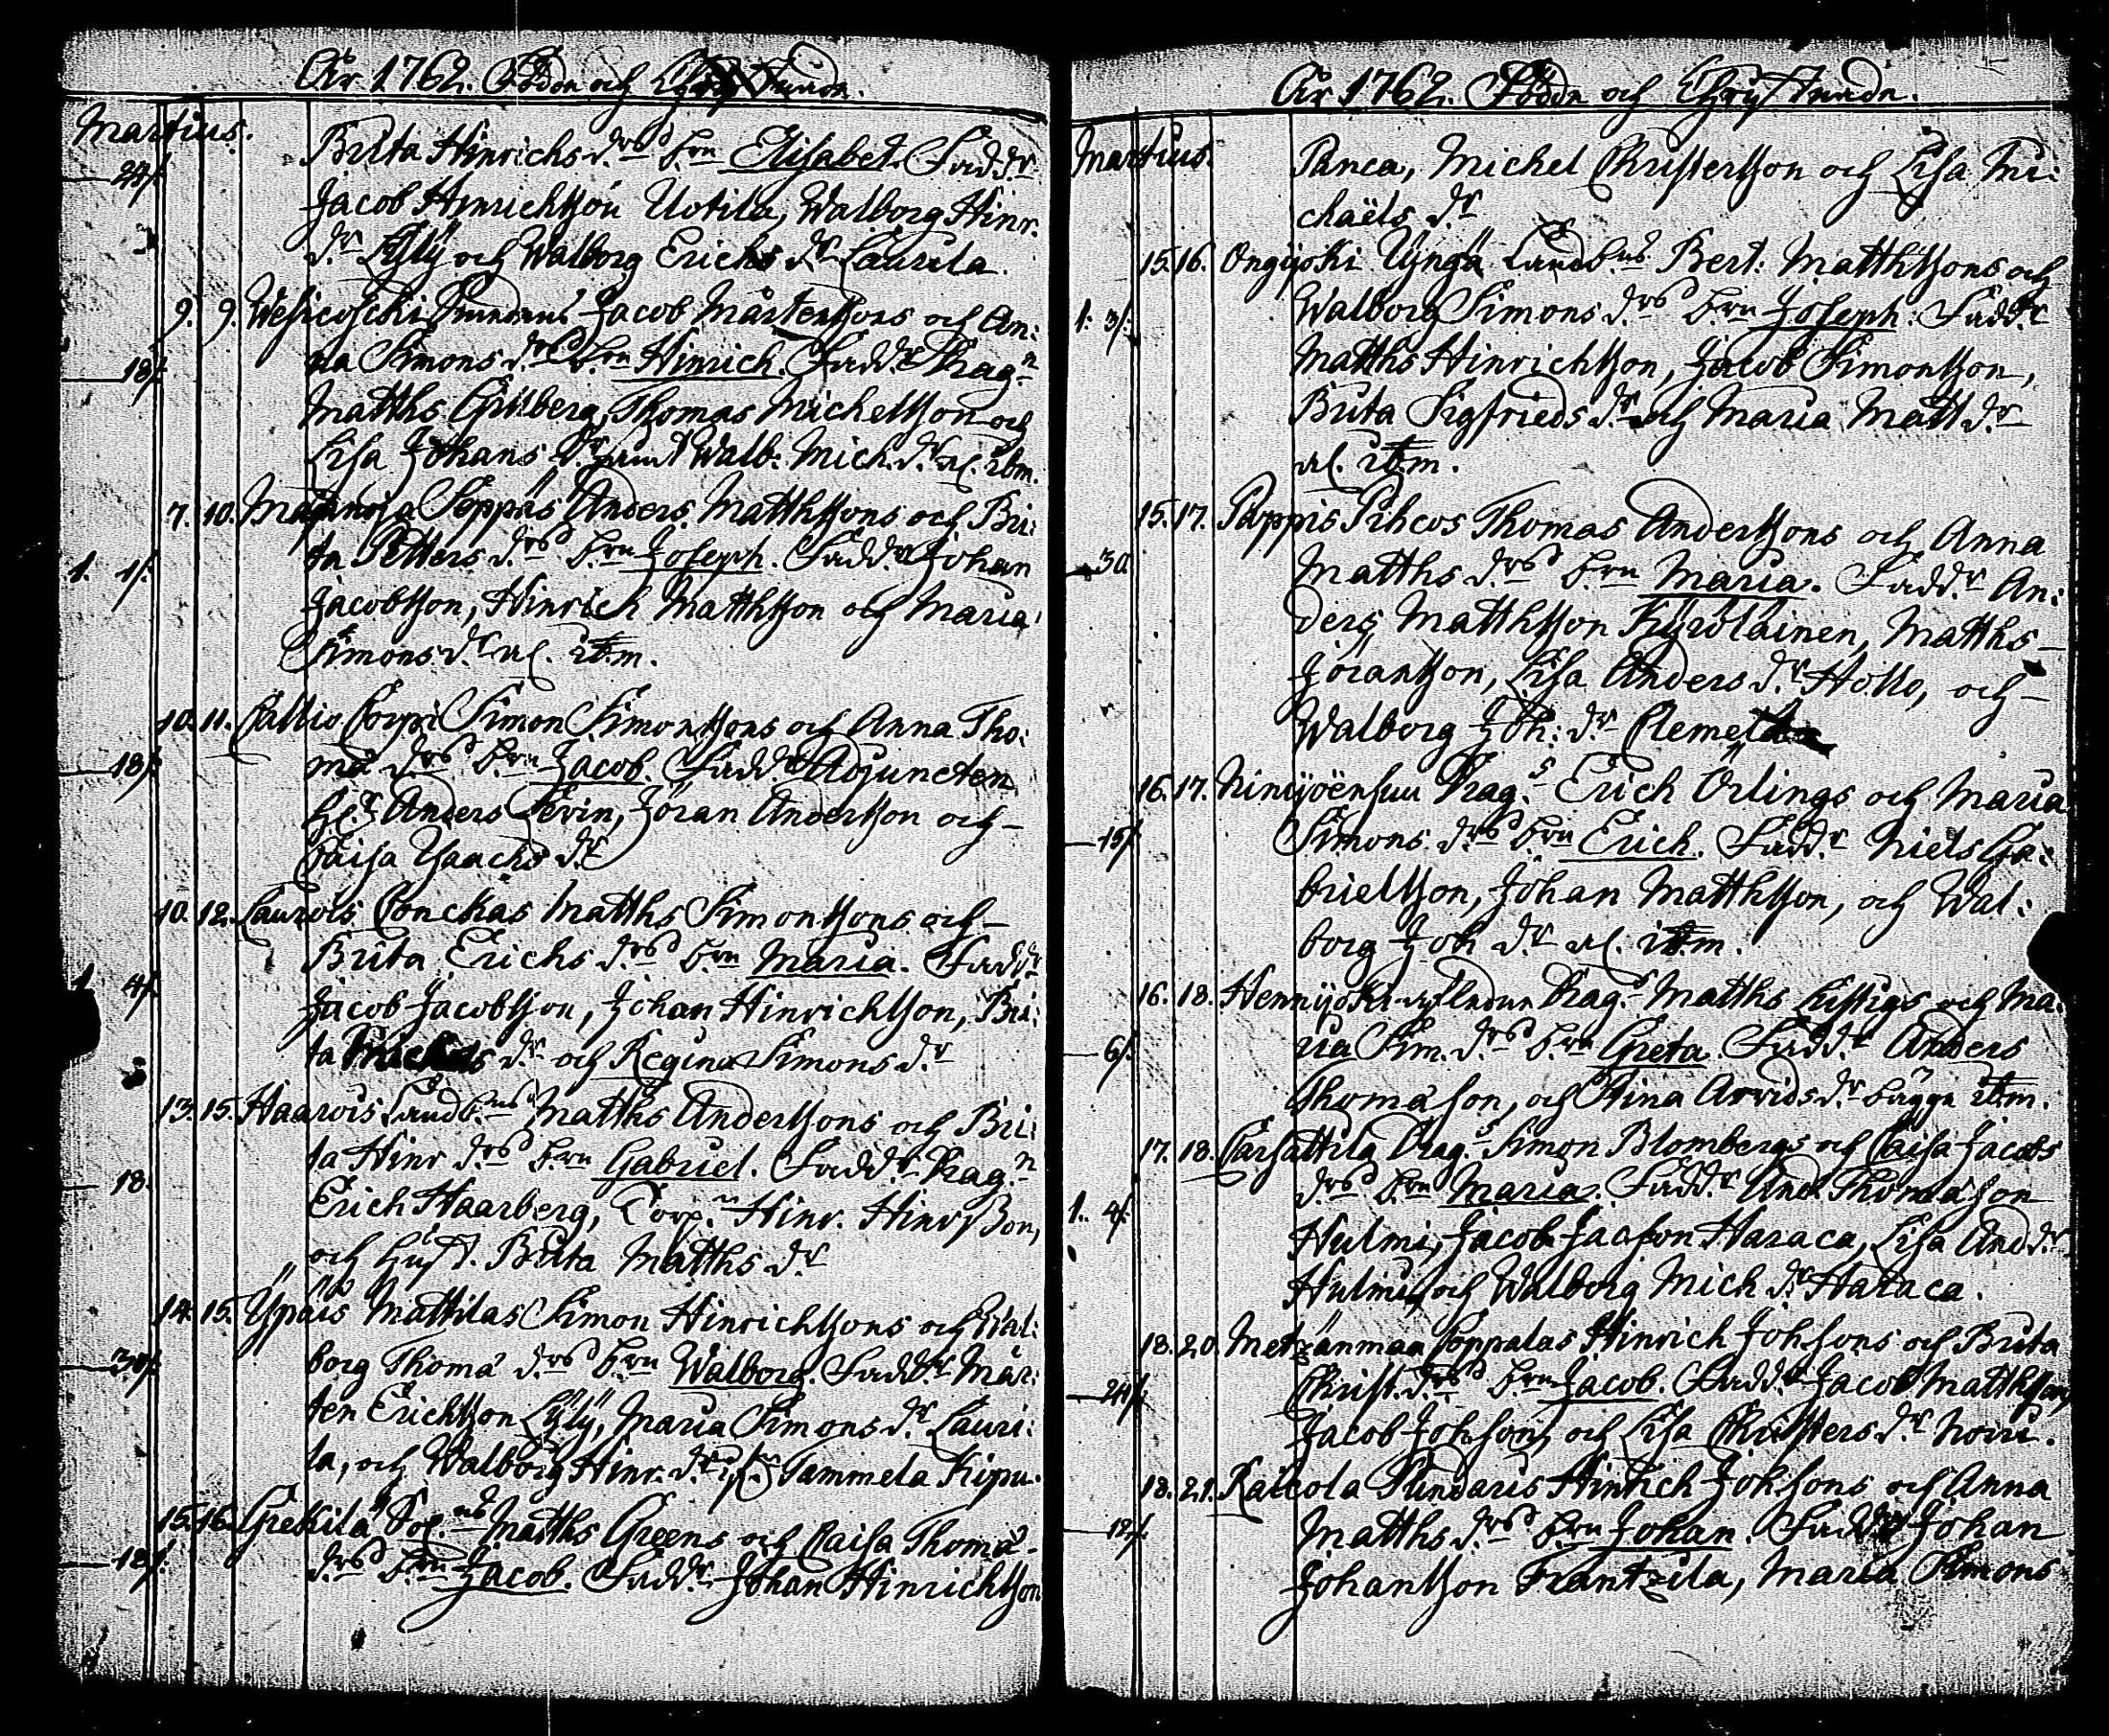 År 1762. Födde och Christnade.
Martius.
Brita Hinrichs drs brn Elisabet. Faddr
24/.
Jacob Hinrichsson Uotila, Walborg Hinr.
dr Lyly och Walborg Erichs dr Laurila.
9. 9. Jacob Mårtenssons och An:
na Simons drs brn Hinrich. Faddr Dragn
18/.
Matths Grüberg, Thomas Michelsson och
Lisa Johans dr samt Walb: Mich. dr al. ibm.
7. 10. Seppäs Anders Matthssons och Bri:
ta Petters drs brn Joseph. Faddr Johan
1. 1/.
Jacobsson, Hinrich Matthsson och Maria
Simons dr al. ibm.
10. 11. Callio Corpi Simon Simonssons och Anna Tho:
mæ drs brn Jacob. Faddr Adjuncten
18/.
Hr Anders Levin, Jöran Andersson och
Caisa Isaachs dr
10. 12. Laurois Conckas Matths Simonssons och
Brita Erichs drs brn Maria. Faddr
1 4/.
Jacob Jacobsson, Johan Hinrichsson, Bri:
ta dr och Regina Simons dr
13. 15. Haarois Landb:ns Matths Anderssons och Bri:
ta Hinr drs brn Gabriel. Faddr Dragn
18.
Erich Haarberg, Corp. Hinr. Hinrsson,
och Hust. Brita Matths dr
14. 15. Ypäis Mattilas Simon Hinrichssons och Wal:
borg Thomæ drs brn Walborg. Faddr Mår:
30/.
ten Erichsson Lyly, Maria Simons dr Lauri:
la, och Walborg Hinr. dr Tammela Kipu.
15. 16. Grekilä Matths Greens och Caisa Thomæ
drs brn Jacob. Faddr Johan Hinrichsson
18/.
År 1762. Födde och Christnade.
Martius.
Panca, Michel Christersson och Lisa Mi:
chaëls dr
15. 16. Ongijoki Landb:ns Bert: Matthssons och
1. 3/.
Walborg Simons drs brn Joseph. Faddr
Matths Hinrichsson, Jacob Simonsson,
Brita Sigfrieds dr och Maria Matt dr
al. ibm.
15. 17. Pappis Pihcos Thomas Anderssons och Anna
Matths drs brn Maria. Faddr An:
30
ders Matthsson Kyrölainen, Matths
Jöransson, Lisa Anders dr Hollo, och
Walborg Joh: dr Clemelä
16. 17. Ninijoënsuu Drag:s Erich Örlings och Maria
Simons drs brn Erich. Faddr Niels Ga:
15/.
brielsson, Johan Matthsson, och Wal:
borg Joh dr al. ibm.
16. 18. Hennijoki Drag:s Matths Listigs och Ma:
ria Sim. drs brn Greta. Faddr Anders
6/.
Thomæson, och Stina Arvids dr bägge ibm.
17. 18. Carsattila Drag:s Simon Blombergs och Caisa Jacobs
drs brn Maria. Faddr And. Thomæson
1. 4/.
Hulmi, Jacob Jacsson Haraca, Lisa And dr
Hulmi, och Walborg Mich dr Haraca.
18. 20. Metzänmaa Poppalas Hinrich Johsons och Brita
Christ. drs brn Jacob. Faddr Jacob Matthsson
24/.
Jacob Johson, och Lisa Christers dr
18. 21. Raicola Pundaris Hinrich Johsons och Anna
Matths drs brn Johan. Faddr Johan
12/.
Johansson Frantzila, Maria Simons